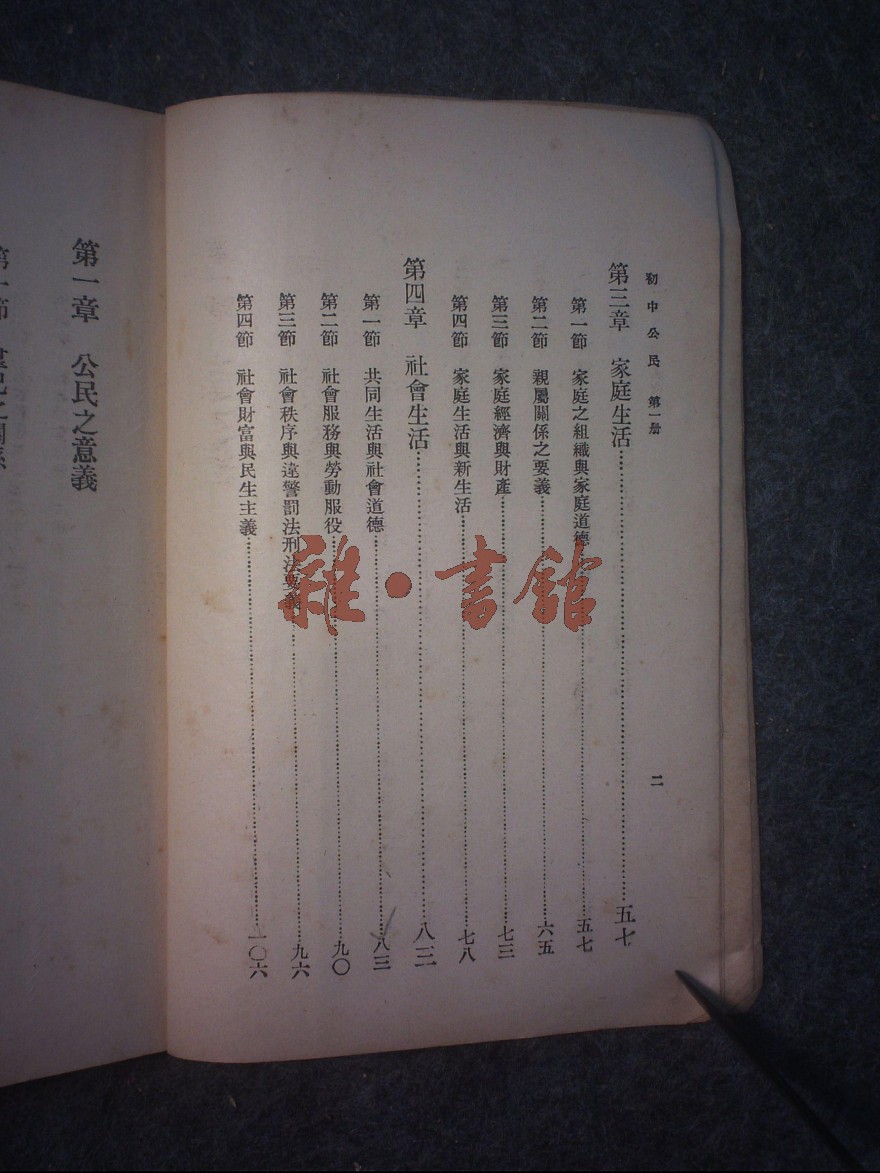 初中公民 第一册
二
第三章 家庭生活……五七
第一節 家庭之組織與家庭道德……五七
第二節 親屬關係之要義……六五
第三節 家庭經濟與財產……七三
第四節 家庭生活與新生活……七八
第四章 社會生活……八三
第一節 共同生活與社會道德……八三
第二節 社會服務與勞動服役……九〇
第三節 社會秩序與違警罰法刑法要義……九六
第四節 社會財富與民生主義……一〇六
第一章 公民之意義
第一節
雜·書館